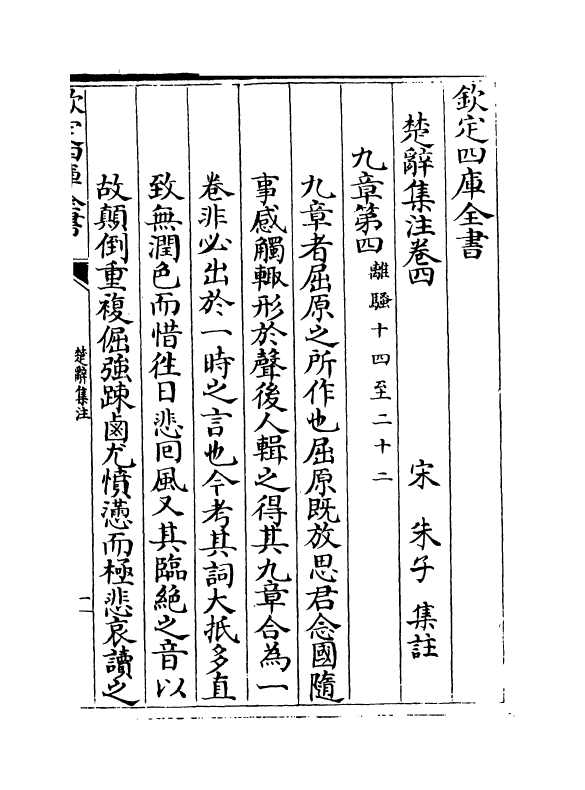 欽定四庫全書
楚辭集注卷四
宋 朱子 集註
九章第四 離騷十四至二十二
九章者屈原之所作也屈原既放思君念國隨
事感觸輙形於聲後人輯之得其九章合為一
卷非必出於一時之言也今考其詞大抵多直
致無潤色而惜徃日悲回風又其臨絶之音以
故顛倒重複倔強踈鹵尤憤懣而極悲哀讀之
欽定四庫全書
楚辭集注
一